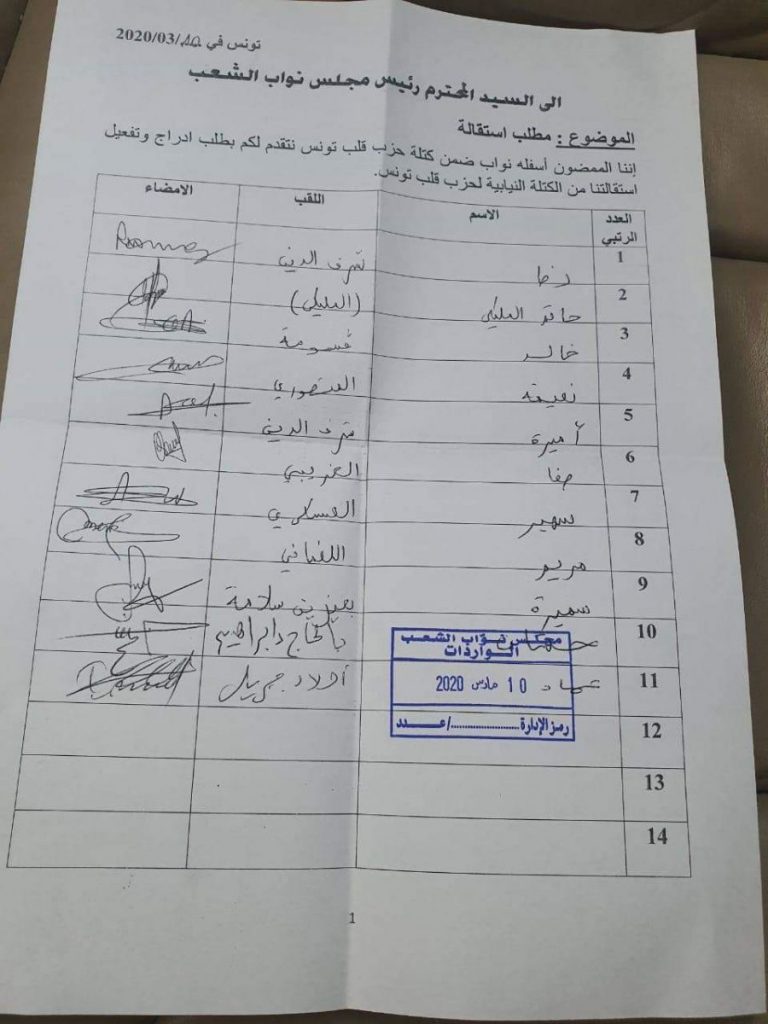 تونس في 10/03/2020
الى السيد المحترم رئيس مجلس نواب الشعب
الموضوع : مطلب استقالة
إننا الممضون أسفله نواب ضمن كتلة حزب قلب تونس نتقدم لكم بطلب ادراج وتفعيل
استقالتنا من الكتلة النيابية لحزب قلب تونس.
العدد الرتبي الاسم اللقب الامضاء
1 رضا شرف الدين
2 حاتم المليكي (المليكي)
3 خالد قسومة
4 نعيمة المنصوري
5 أميرة شرف الدين
6 صفا الغريبي
7 سهير العسكري
8 مريم اللغماني
9 سميرة بن سلامة
10 بالحاج ابراهيم
11 عماد أولاد جبريل
12
13
14
مجلس نواب الشعب
الواردات
10 مارس 2020
رمز الإدارة................/عـــدد
1